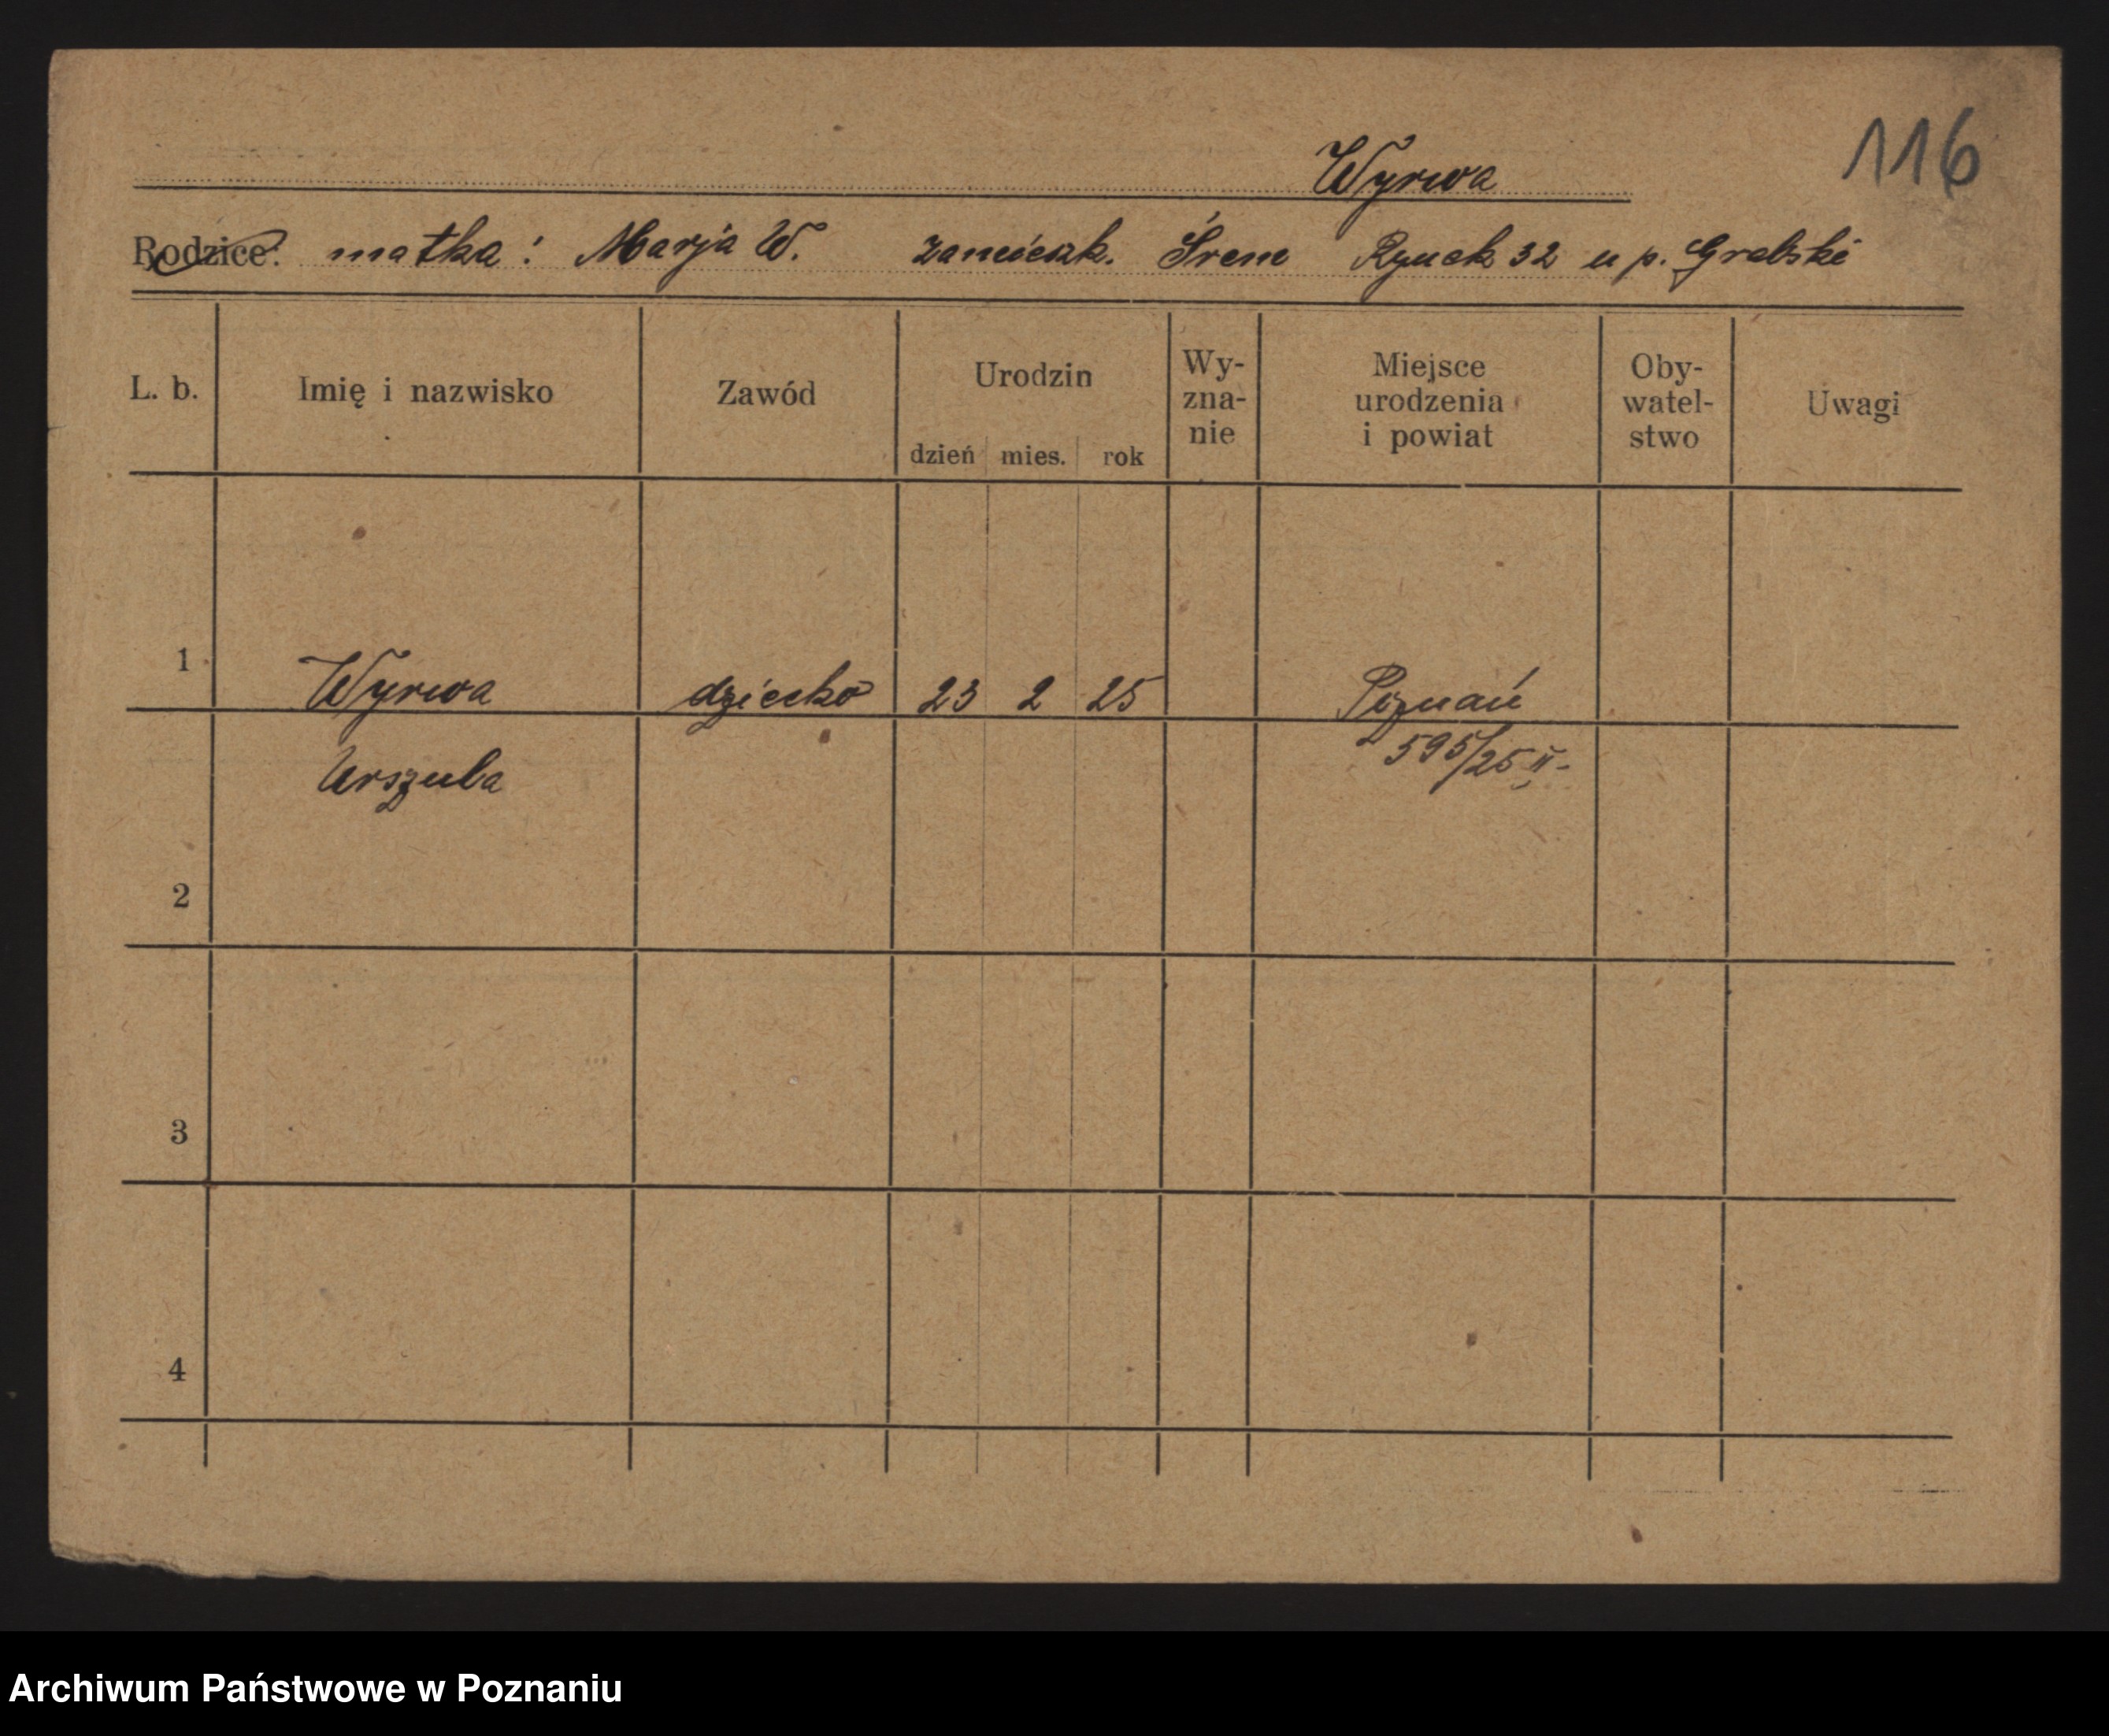 116
Wyrwa
Rodzice: matka: Marja W. zamieszk. Śrem Rynek 32 u p. Grabski
L. b. Imię i nazwisko Zawód Urodzin dzień mies. rok Wy-zna-nie Miejsce urodzenia i powiat Oby-watel-stwo Uwagi
1 Wyrwa dziecko 23 2 25 Poznań
Urszula 595/25 II.
2
3
4
Archiwum Państwowe w Poznaniu